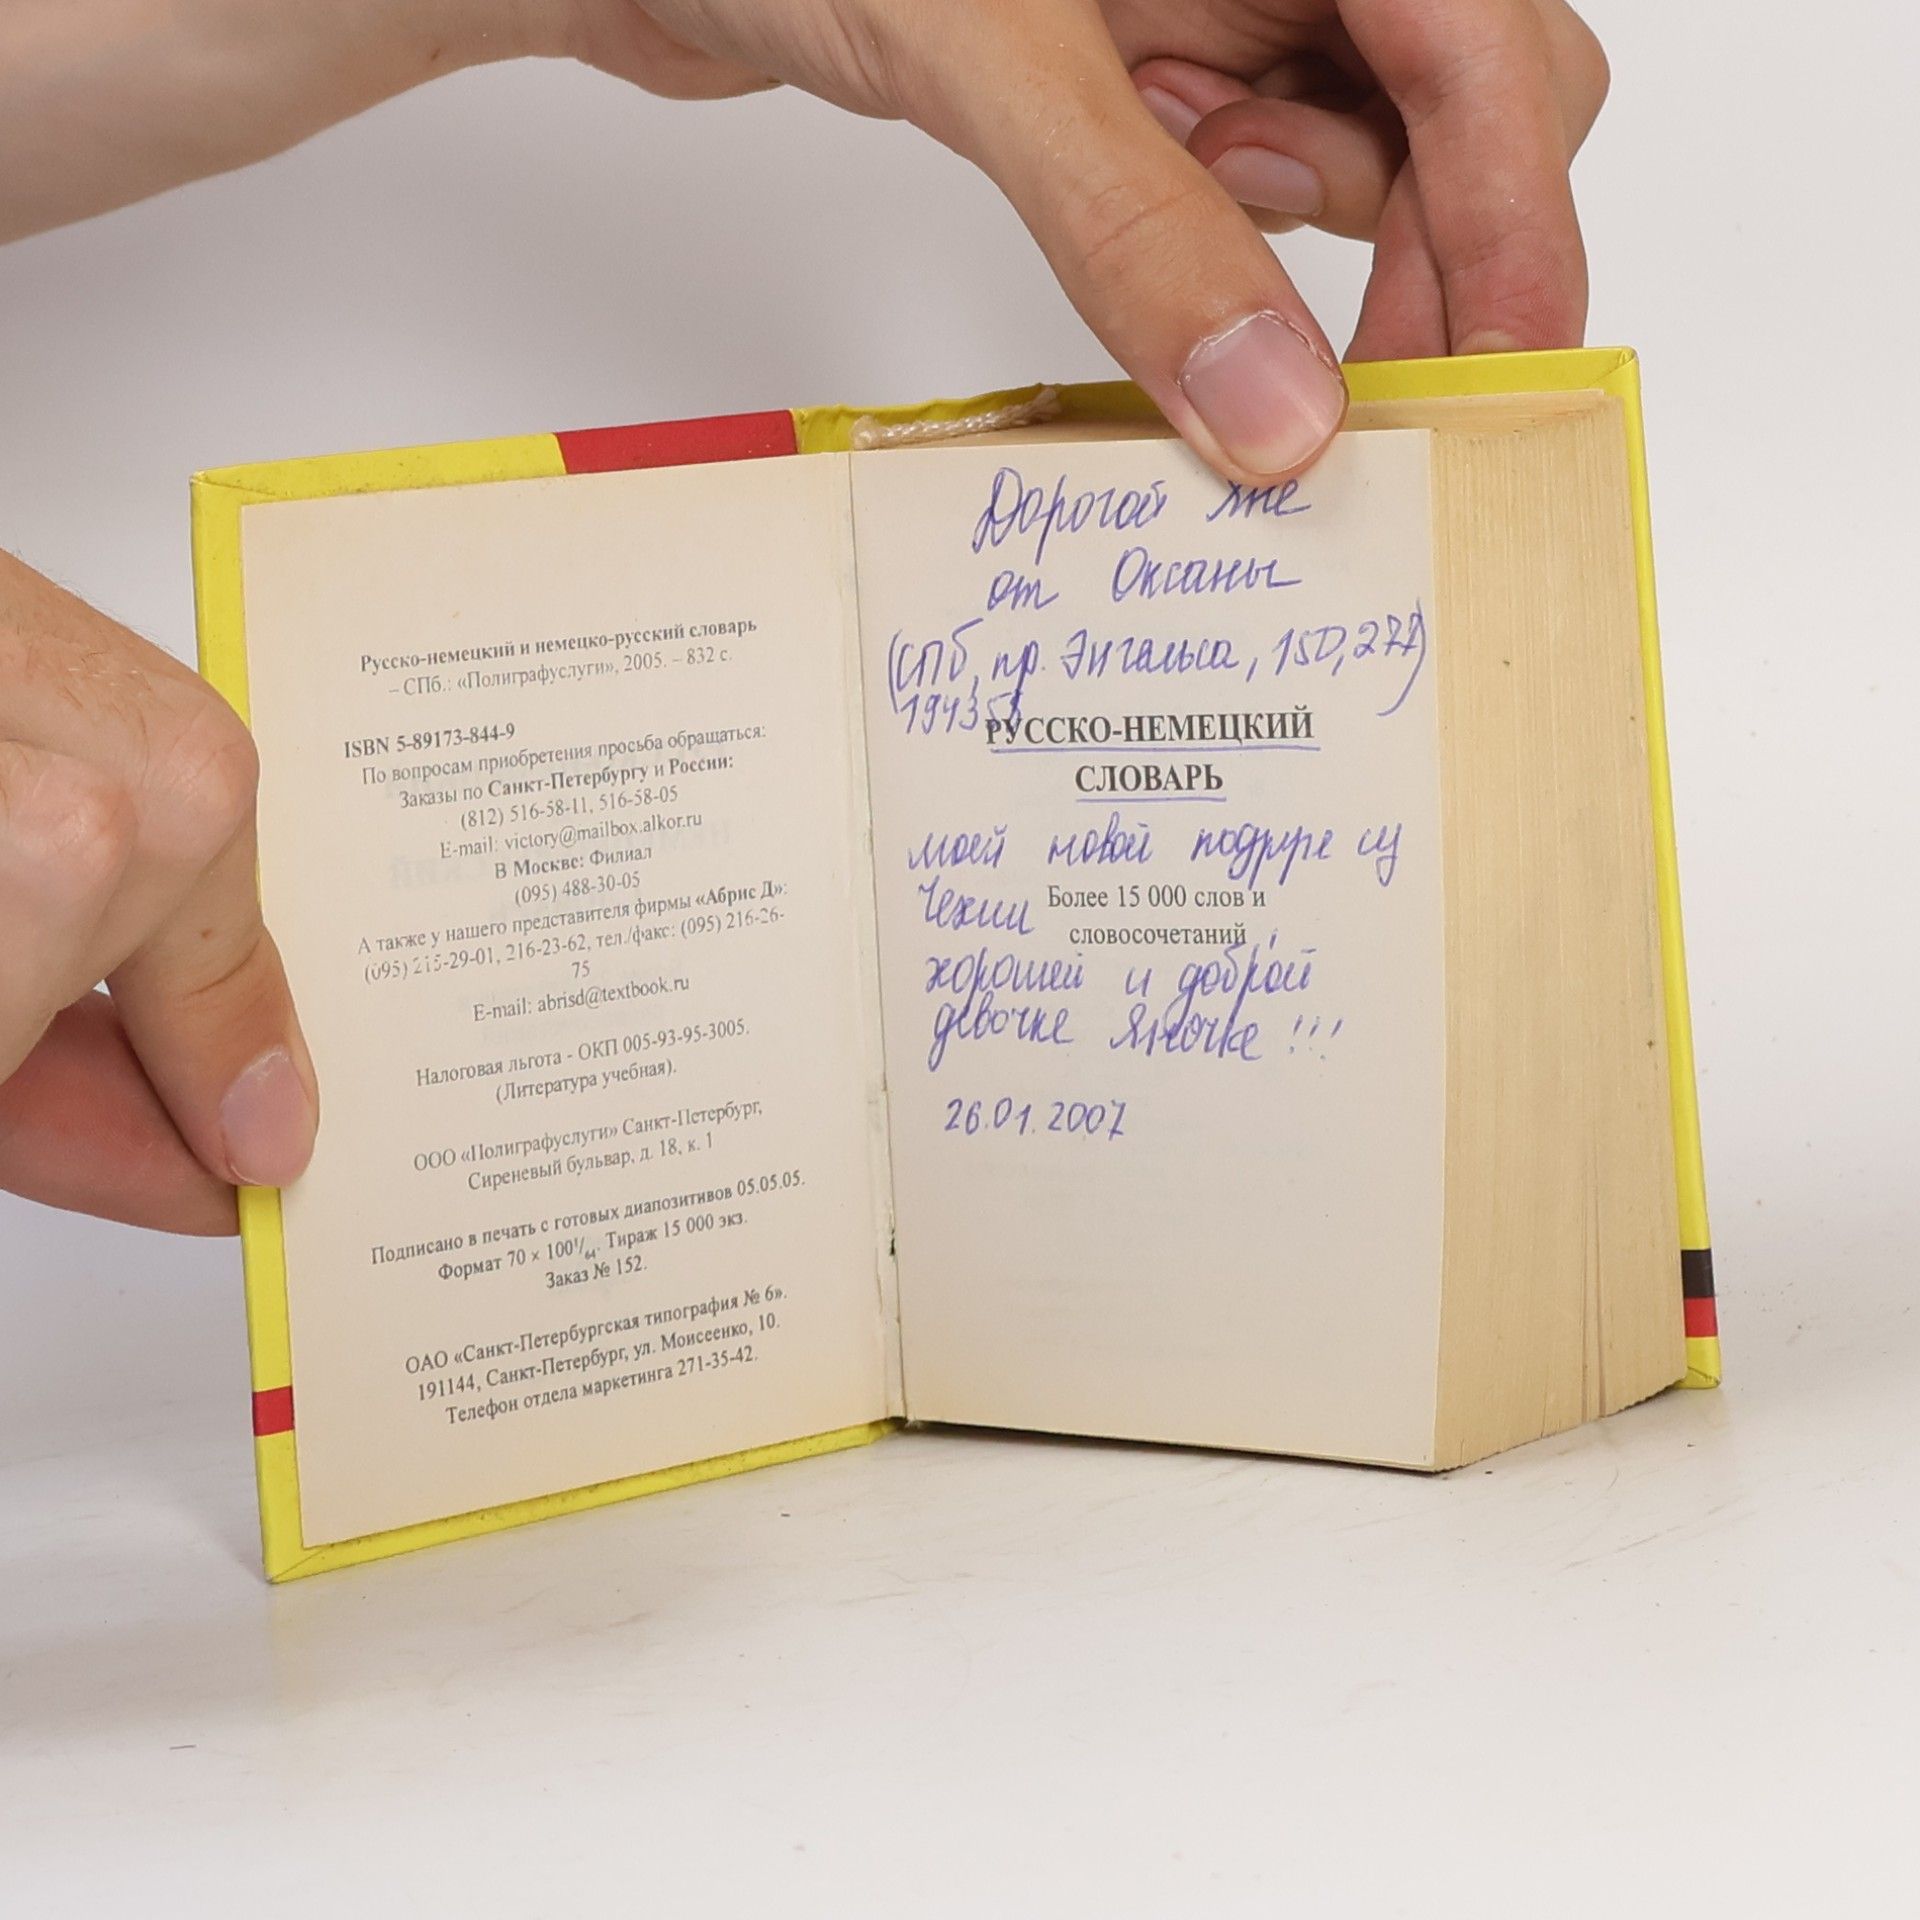 Русско-немецкий и немецко-русский словарь
– СПб.: «Полиграфуслуги», 2005. – 832 с.
ISBN 5-89173-844-9
По вопросам приобретения просьба обращаться:
Заказы по Санкт-Петербургу и России:
(812) 516-58-11, 516-58-05
E-mail: victory@mailbox.alkor.ru
В Москве: Филиал
(095) 488-30-05
А также у нашего представителя фирмы «Абрис Д»:
(095) 215-29-01, 216-23-62, тел./факс: (095) 216-26-
75
E-mail: abrisd@textbook.ru
Налоговая льгота - ОКП 005-93-95-3005.
(Литература учебная).
ООО «Полиграфуслуги» Санкт-Петербург,
Сиреневый бульвар, д. 18, к. 1
Подписано в печать с готовых диапозитивов 05.05.05.
Формат 70 × 100¹/₆₄. Тираж 15 000 экз.
Заказ № 152.
ОАО «Санкт-Петербургская типография № 6».
191144, Санкт-Петербург, ул. Моисеенко, 10.
Телефон отдела маркетинга 271-35-42.
Дорогой Яне
от Оксаны
(СПб, пр. Энгельса, 150,
РУССКО-НЕМЕЦКИЙ
СЛОВАРЬ
моей новой подруге из
Чехии
Более 15 000 слов и
словосочетаний
хорошей и доброй
девочке Яночке!!!
26.01.2007